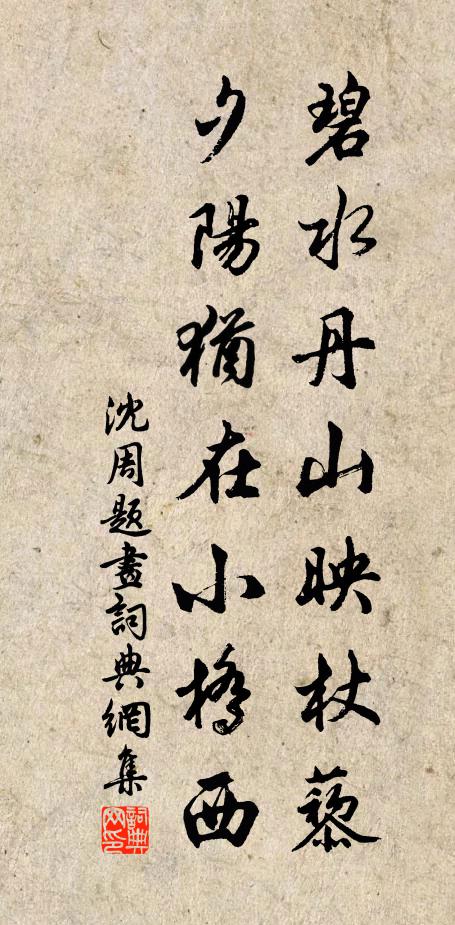 碧水丹山映杖藜
夕陽猶在小橋西
沈周題畫詞典網集
詞典
网印